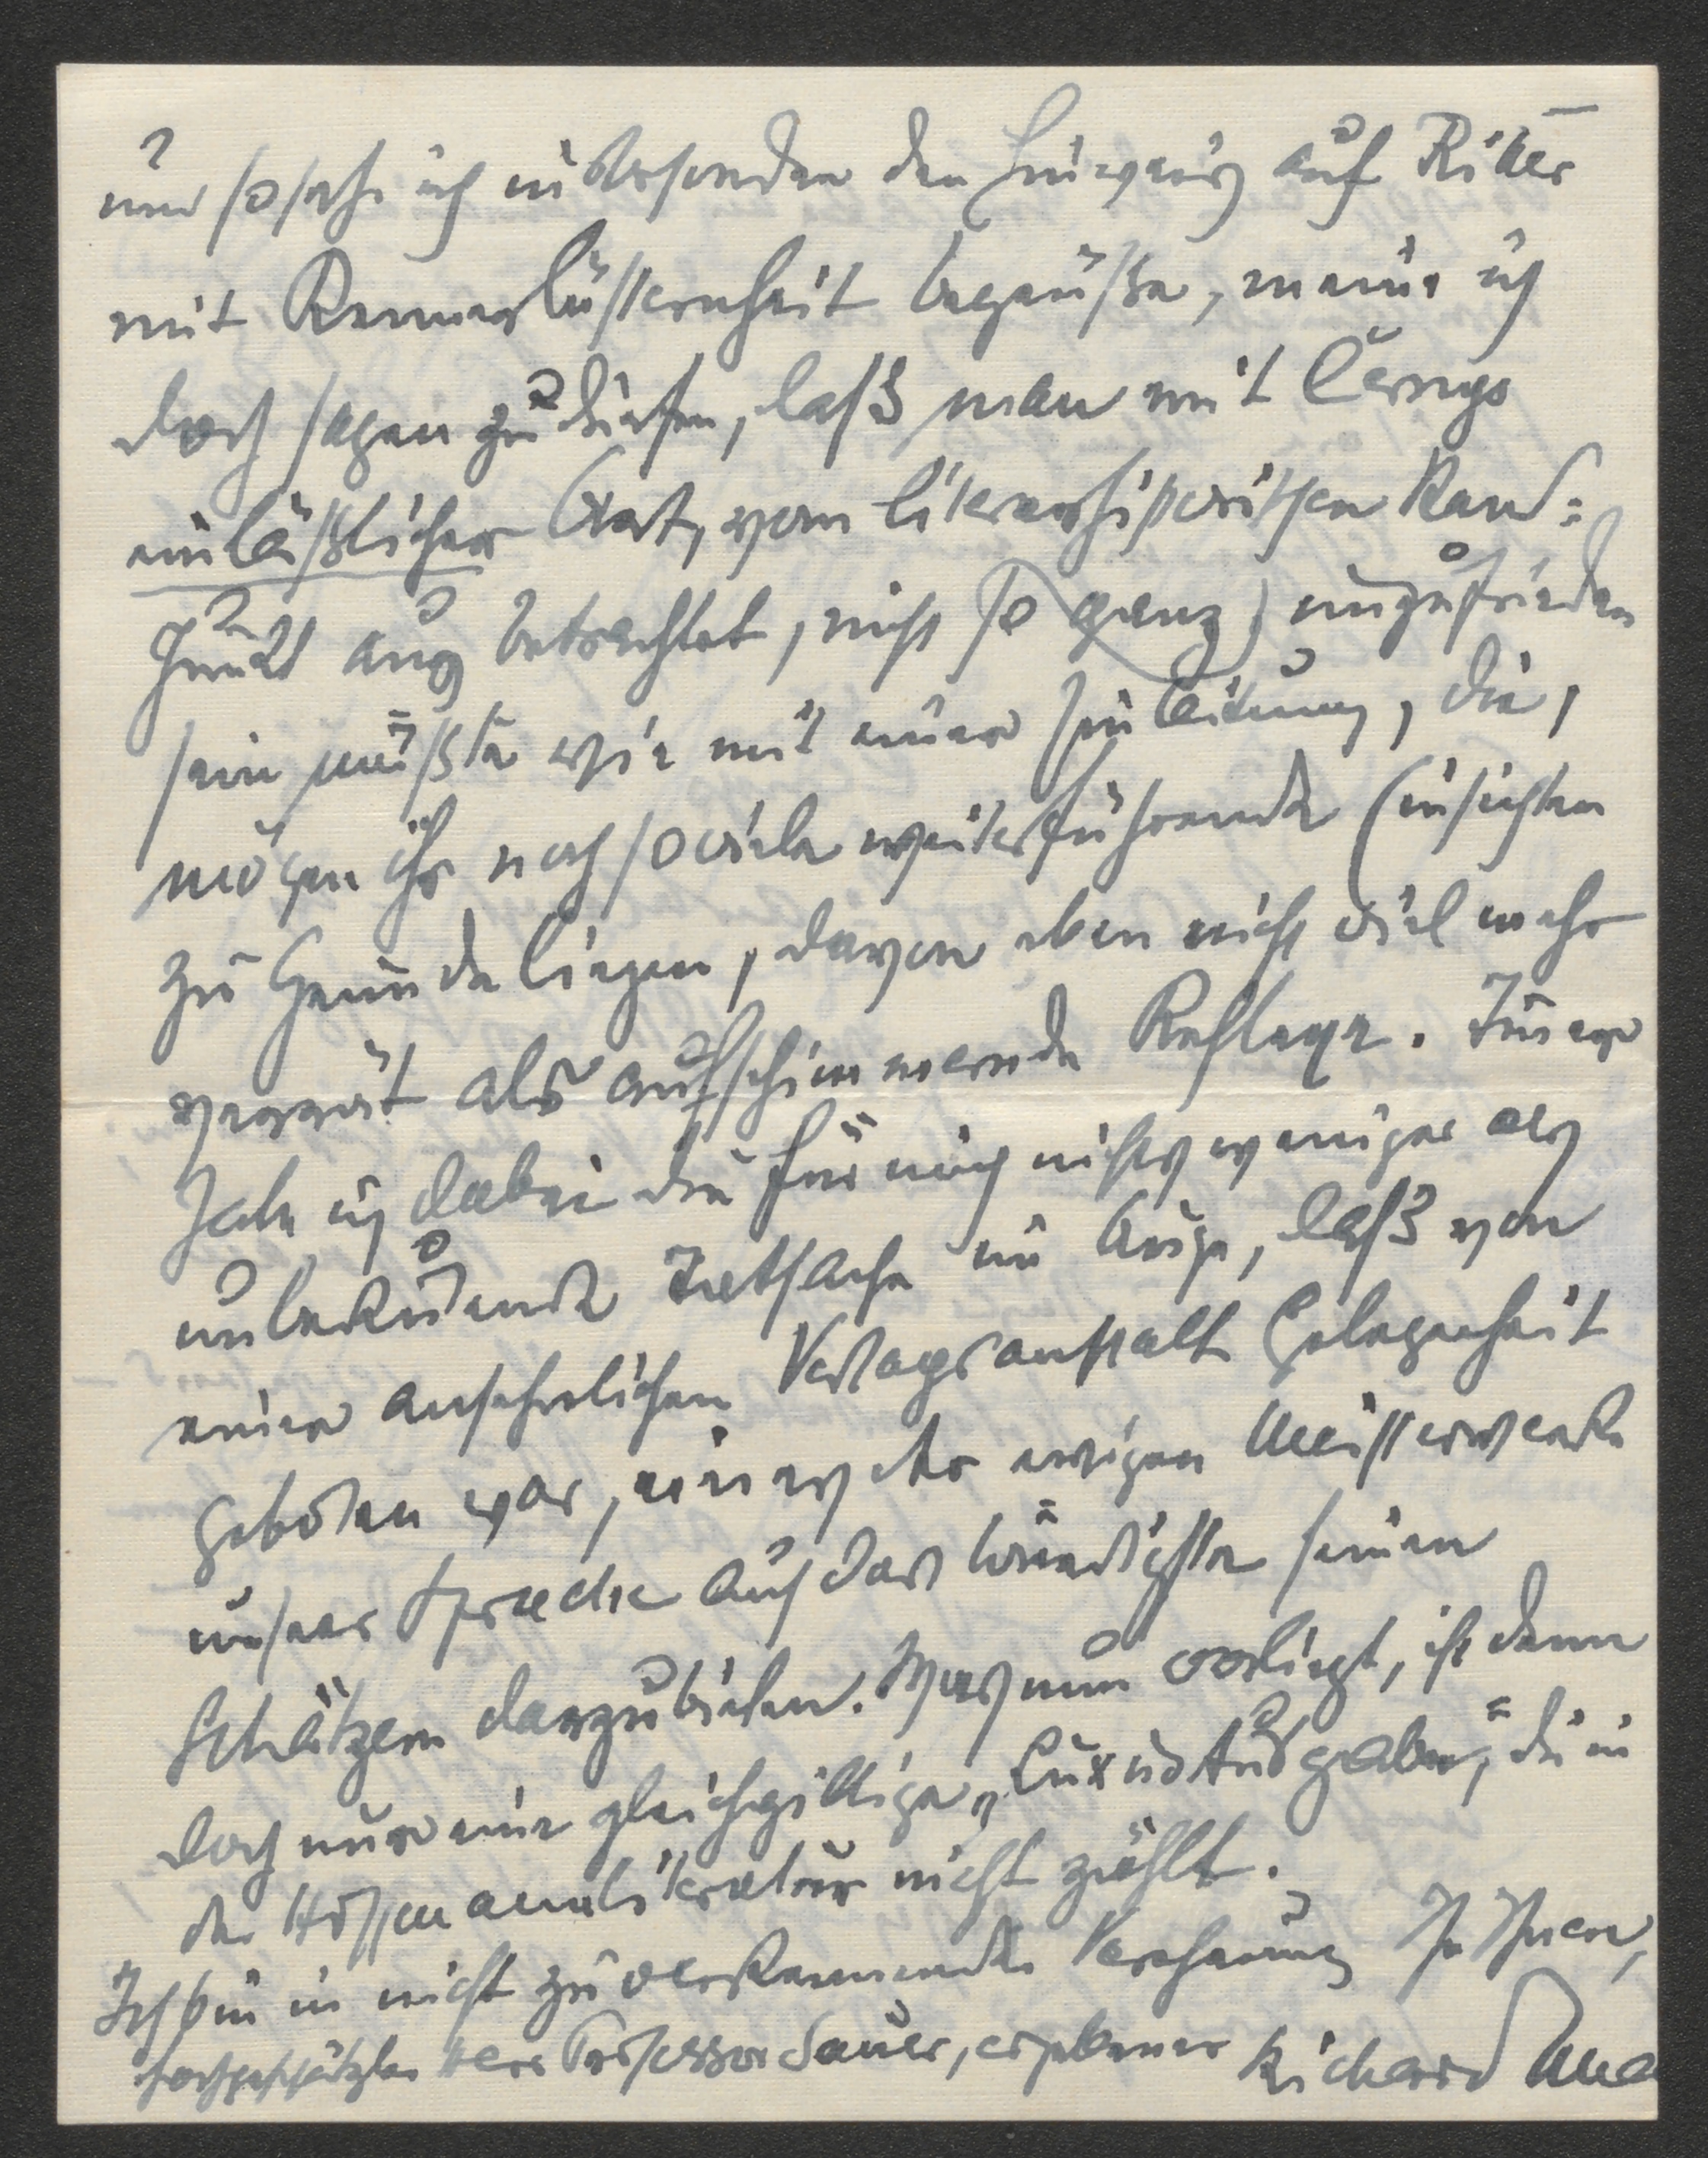 und so sehr ich insbesondere den Hinweis auf Ritter
mit Kennerlüsternheit begrüße, meine ich
doch sagen zu dürfen, daß man mit Cernys
einläßlicher Art, vom literarhistorischen Stand=
punkt aus betrachtet, nicht so ganz unzufrieden
sein müßte wie mit einer Einleitung, die,
mögen ihr noch so viele weiterführende Einsichten
zu Grunde liegen, davon eben nicht viel mehr
verrät als aufschimmernde Reflexe. Immer
habe ich dabei die für mich nichts weniger als
unbedeutende Tatsache im Auge, daß von
einer ansehnlichen Verlagsanstalt Gelegenheit
geboten war, eines der ewigen Meisterwerke
unserer Sprache auf das würdigste seinen
Schätzern darzubieten. Was nun vorliegt, ist denn
doch nur eine gleichgiltige „Luxus Ausgabe“, die in
der Hoffmannliteratur nicht zählt.
Ich bin in nicht zu verkennender Verehrung Ihr Ihnen,
hochgeschätzter Herr Professor Sauer, ergebener Richard